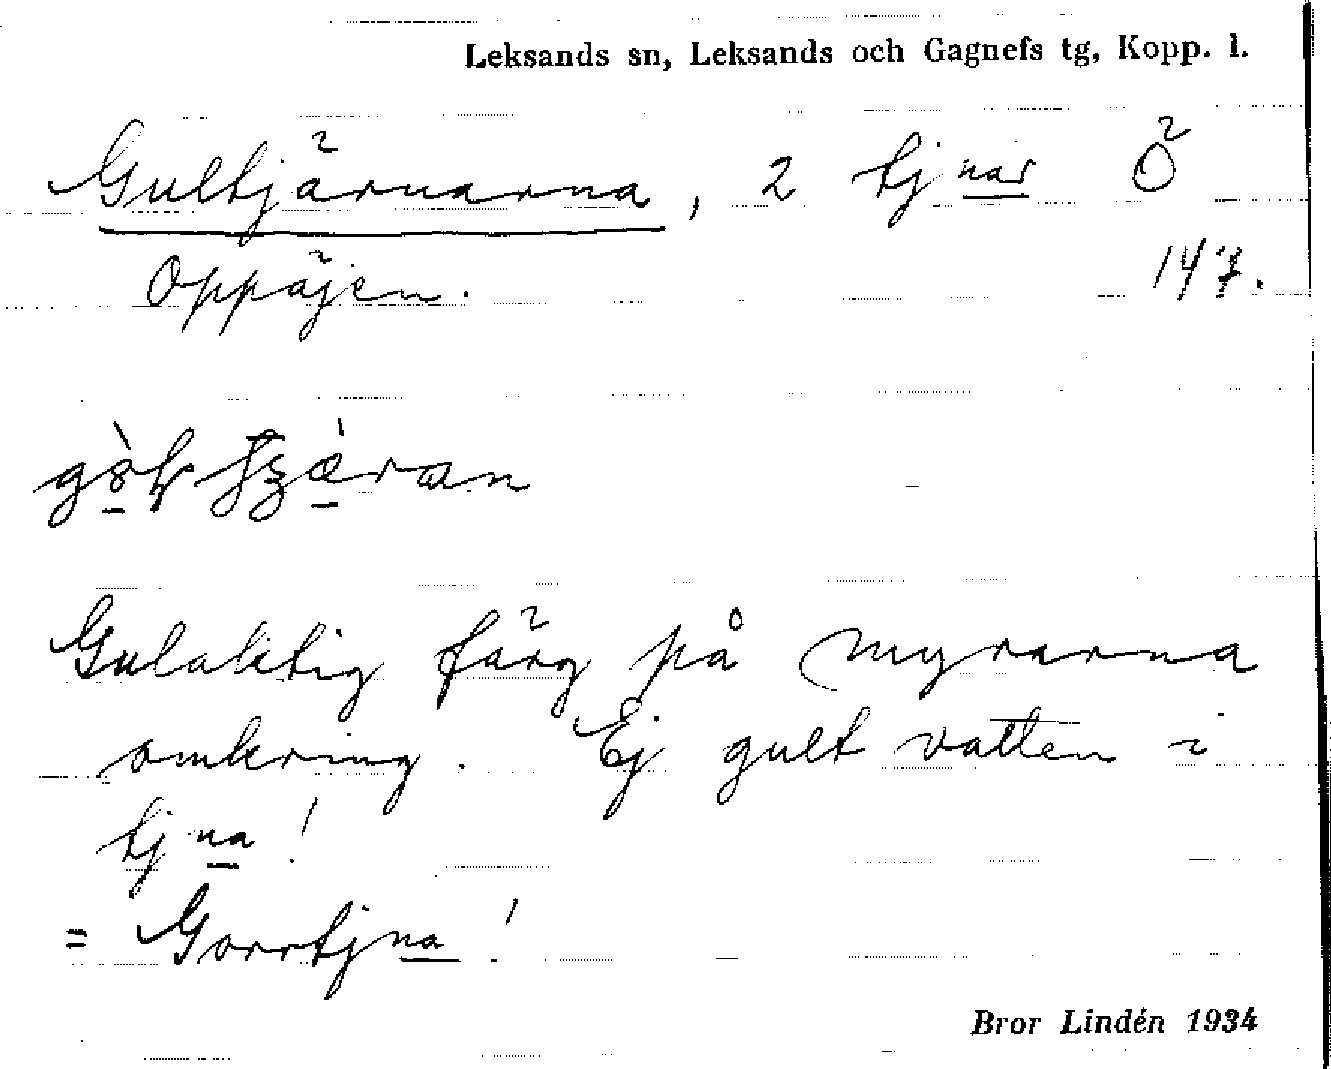 Leksands sn, Leksands och Gagnefs tg, Kopp. l.
Gultjärnarna, 2 tjnar Ö
Oppäjen. 147.
Gulaktig färg på myrarna
omkring. Ej gult vatten i
tjna!
= Gorrtjna!
Bror Lindén 1934